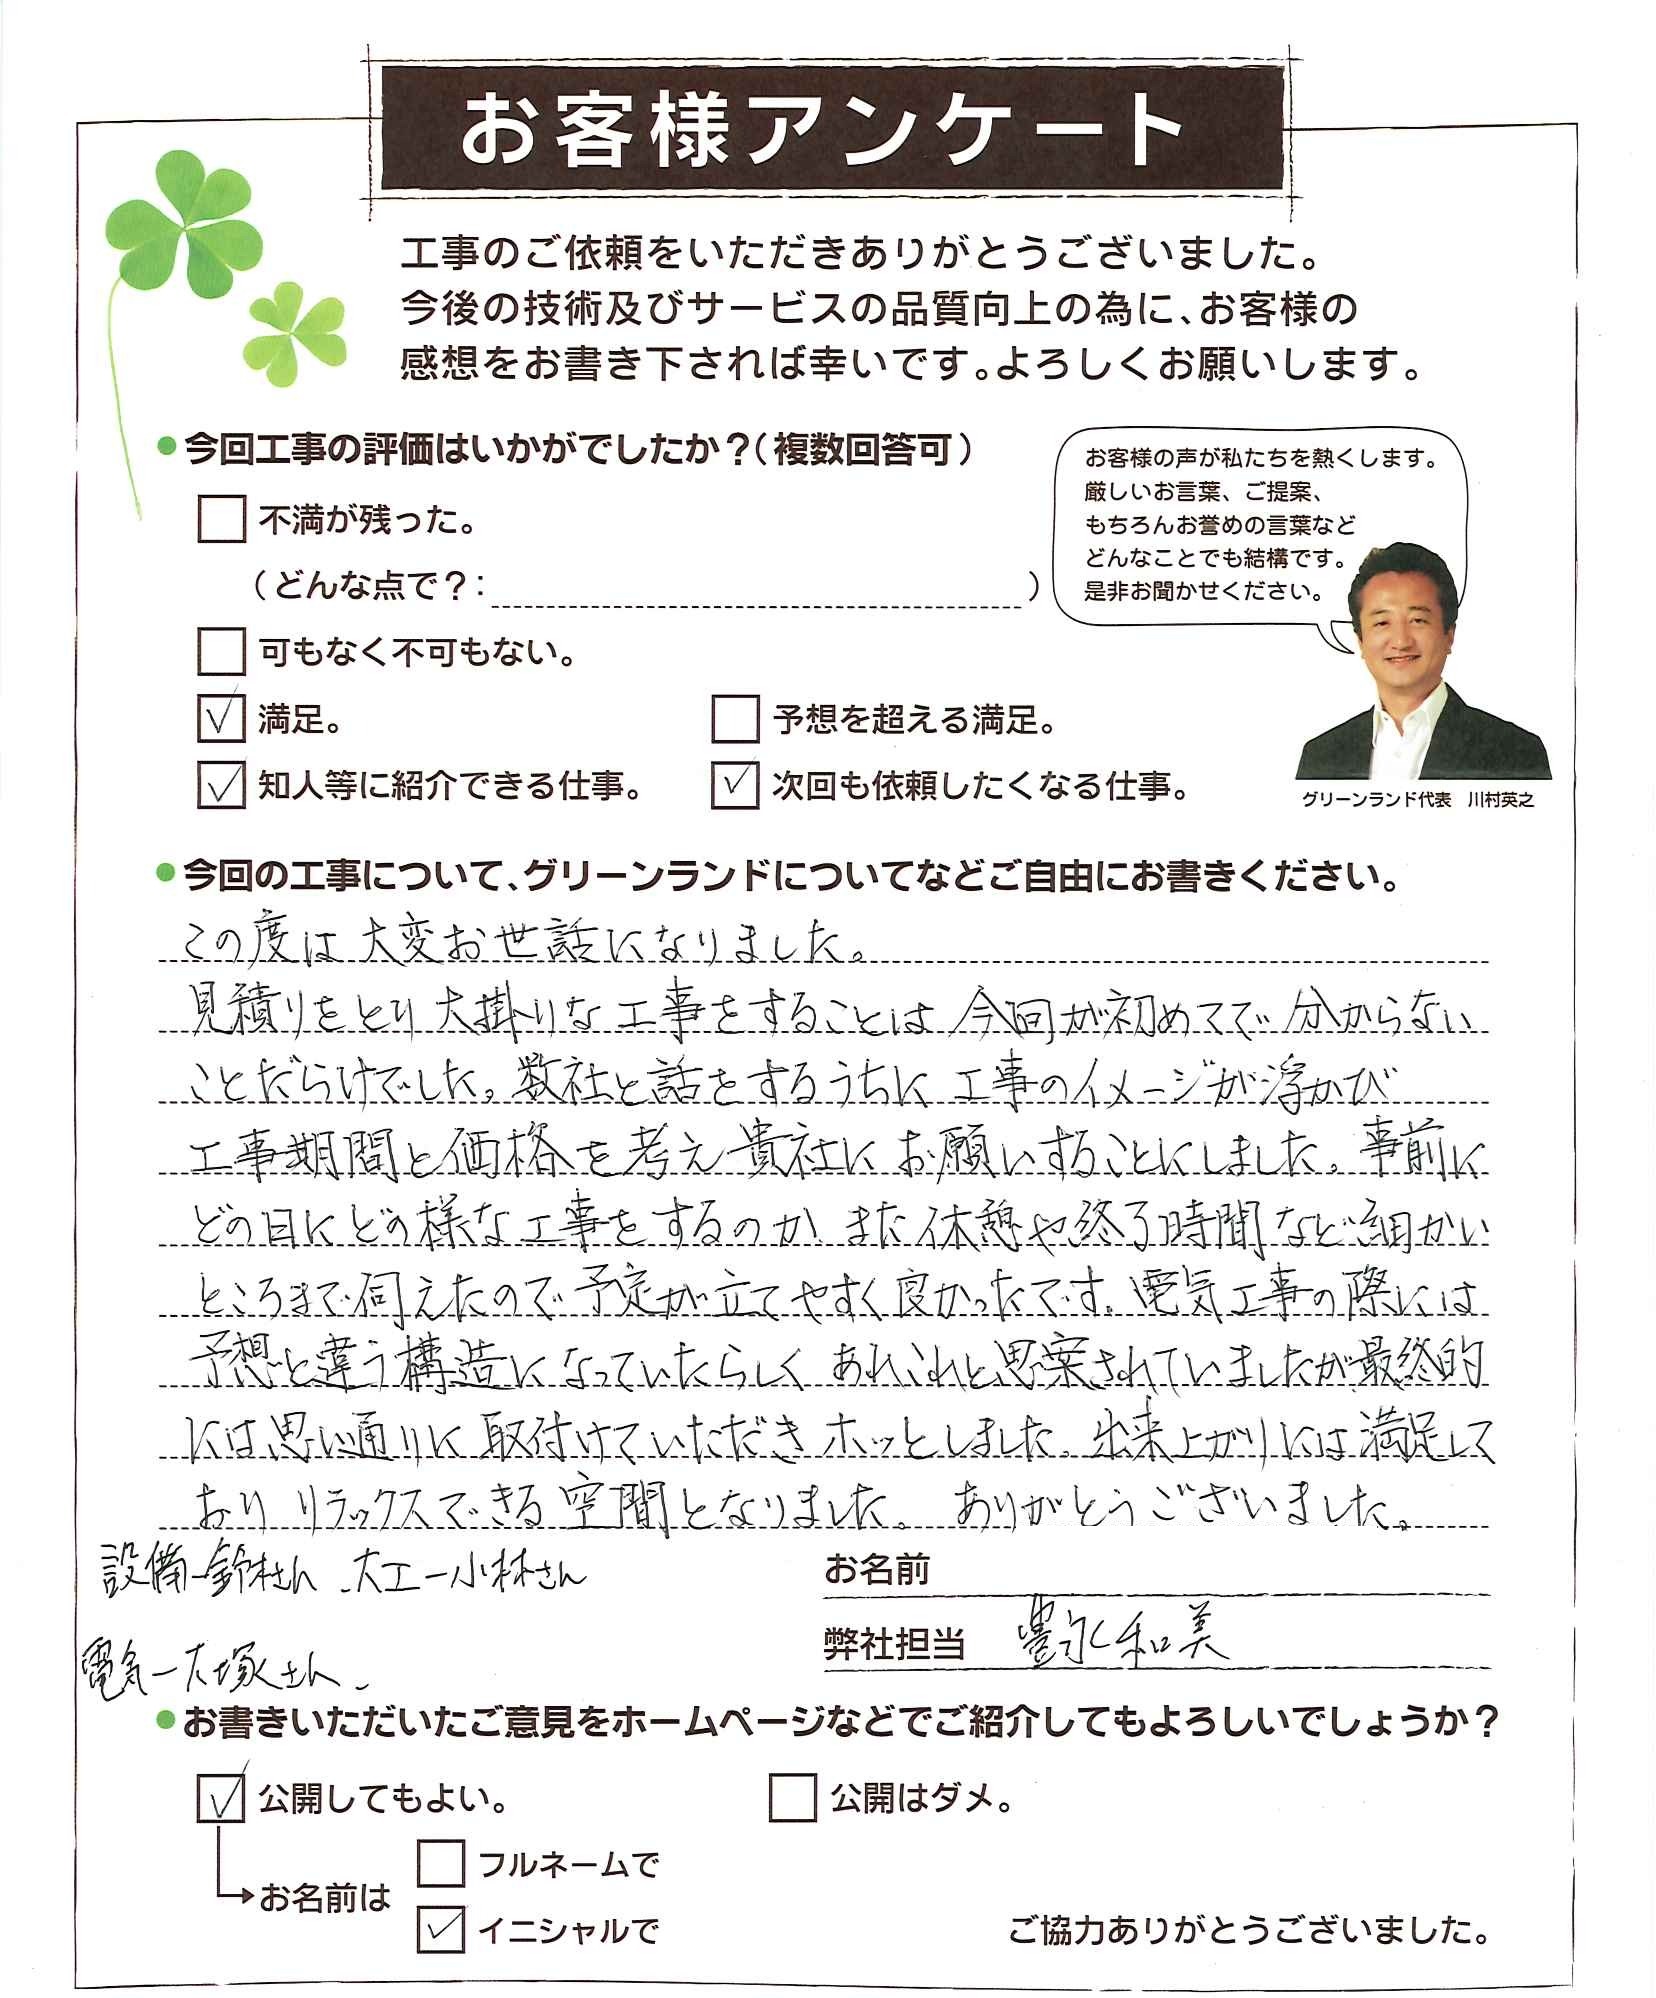 お客様アンケート
工事のご依頼をいただきありがとうございました。
今後の技術及びサービスの品質向上の為に、お客様の
感想をお書き下されば幸いです。よろしくお願いします。
●今回工事の評価はいかがでしたか？（複数回答可）
不満が残った。
（どんな点で？：　）
可もなく不可もない。
満足。
予想を超える満足。
知人等に紹介できる仕事。
次回も依頼したくなる仕事。
お客様の声が私たちを熱くします。
厳しいお言葉、ご提案、
もちろんお誉めの言葉など
どんなことでも結構です。
是非お聞かせください。
グリーンランド代表　川村英之
●今回の工事について、グリーンランドについてなどご自由にお書きください。
この度は大変お世話になりました。
見積りをとり大掛りな工事をすることは今回が初めてで分からない
ことだらけでした。数社と話をするうちに工事のイメージが浮かび
工事期間と価格を考え貴社にお願いすることにしました。事前に
どの日にどの様な工事をするのか また休憩や終了時間など細かい
ところまで伺えたので予定が立てやすく良かったです。電気工事の際には
予想と違う構造になっていたらしく あれこれと思案されていましたが最終的
には思い通りに取付けていただきホッとしました。出来上がりには満足して
おり リラックスできる空間となりました。 ありがとうございました。
設備ー鈴木さん、大工ー小林さん
電気ー大塚さん、
お名前
弊社担当 豊永和美
●お書きいただいたご意見をホームページなどでご紹介してもよろしいでしょうか？
公開してもよい。
公開はダメ。
お名前は
フルネームで
イニシャルで
ご協力ありがとうございました。